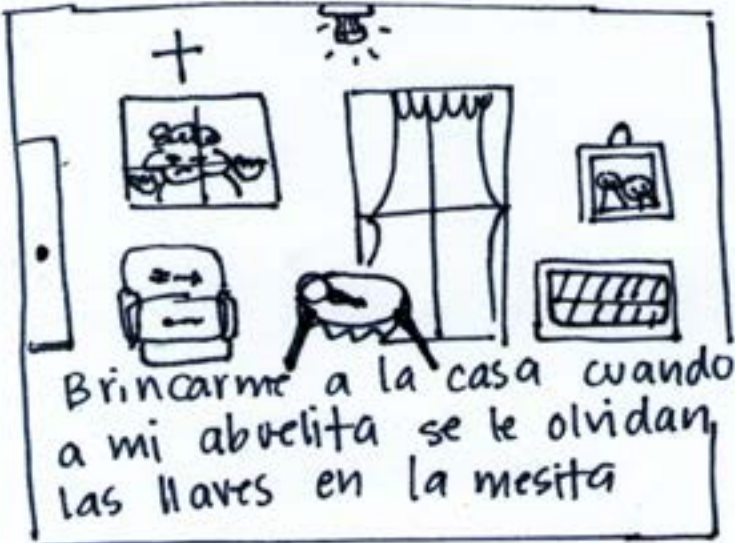 Brincarme a la casa cuando
a mi abuelita se le olvidan
las llaves en la mesita